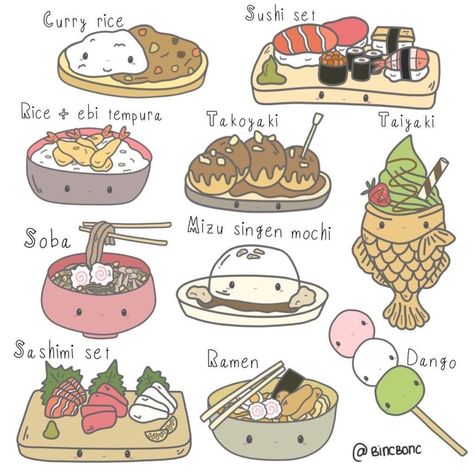 Curry rice
Sushi set
Rice + ebi tempura
Takoyaki
Taiyaki
Soba
Mizu singen mochi
Sashimi set
Ramen
Dango
@BINCBONC